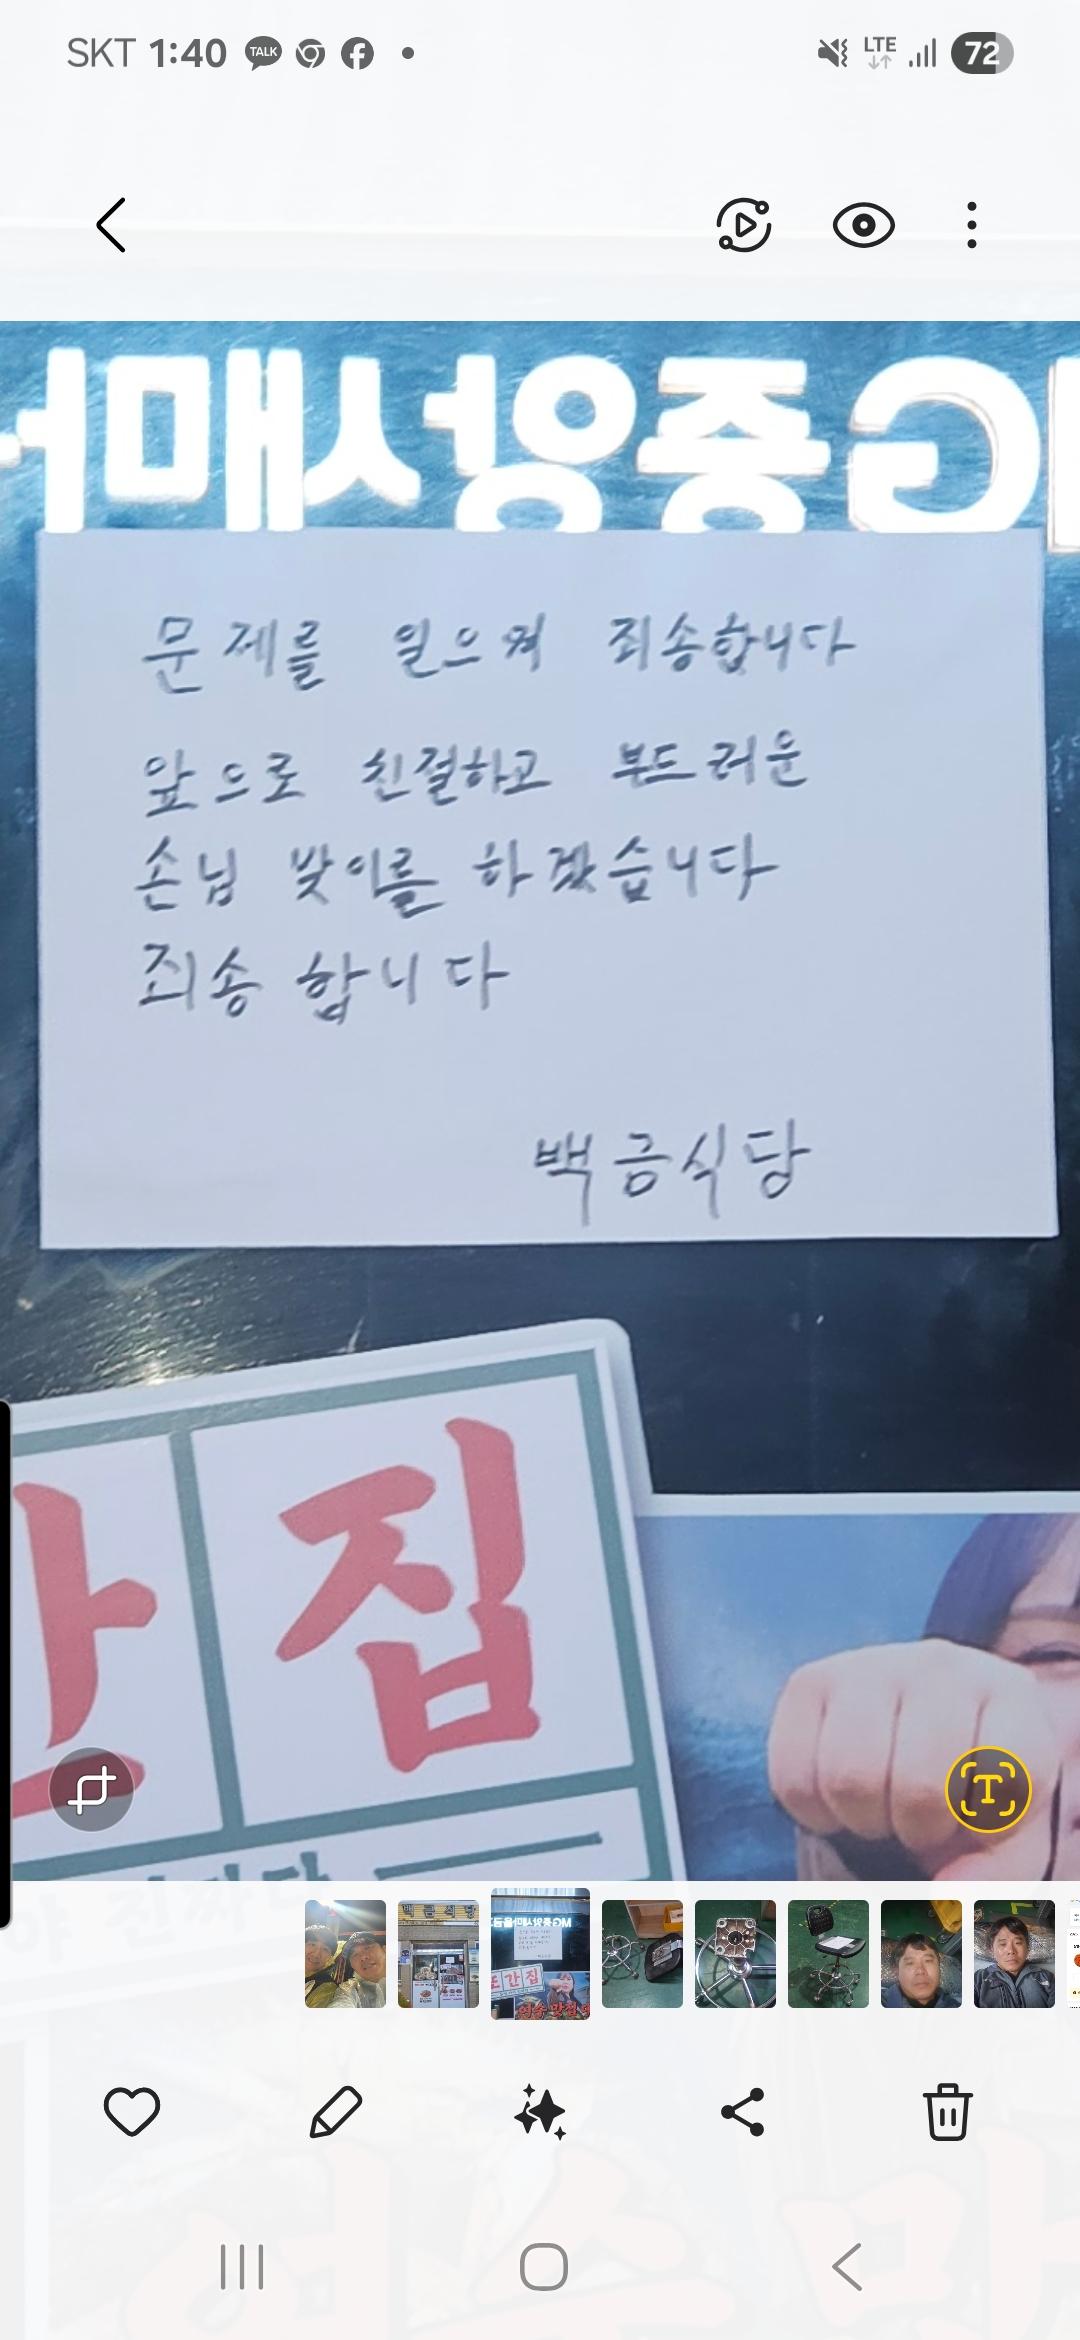 SKT 1:40 TALK LTE 72
MG중앙새마
문제를 일으켜 죄송합니다
앞으로 친절하고 부드러운
손님 맞이를 하겠습니다
죄송합니다
백금식당
간집
T
백금식당
간집